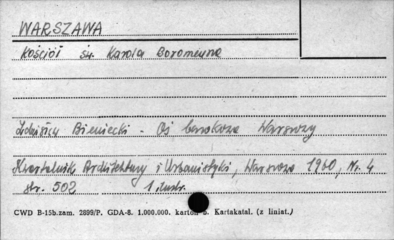 WARSZAWA
Kościół św. Karola Boromeusza
Zdzisław Bieniecki - Oś barokowa Warszawy
Kwartalnik Architektury i Urbanistyki, Warszawa 1960, Nr. 4
str. 502 1 ilustr.
CWD B-15b.zam. 2899/P. GDA-8. 1.000.000. karton B. Kartakatal. (z liniat.)